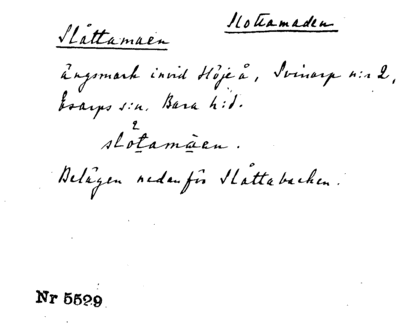 Slottamaden
Slåttamaen
ängsmark invid Höje å, Svinarp n:r 2,
Esarps s:n. Bara h:d.
2
slotamaen.
Belägen nedanför Slåttabacken.
Nr 5529